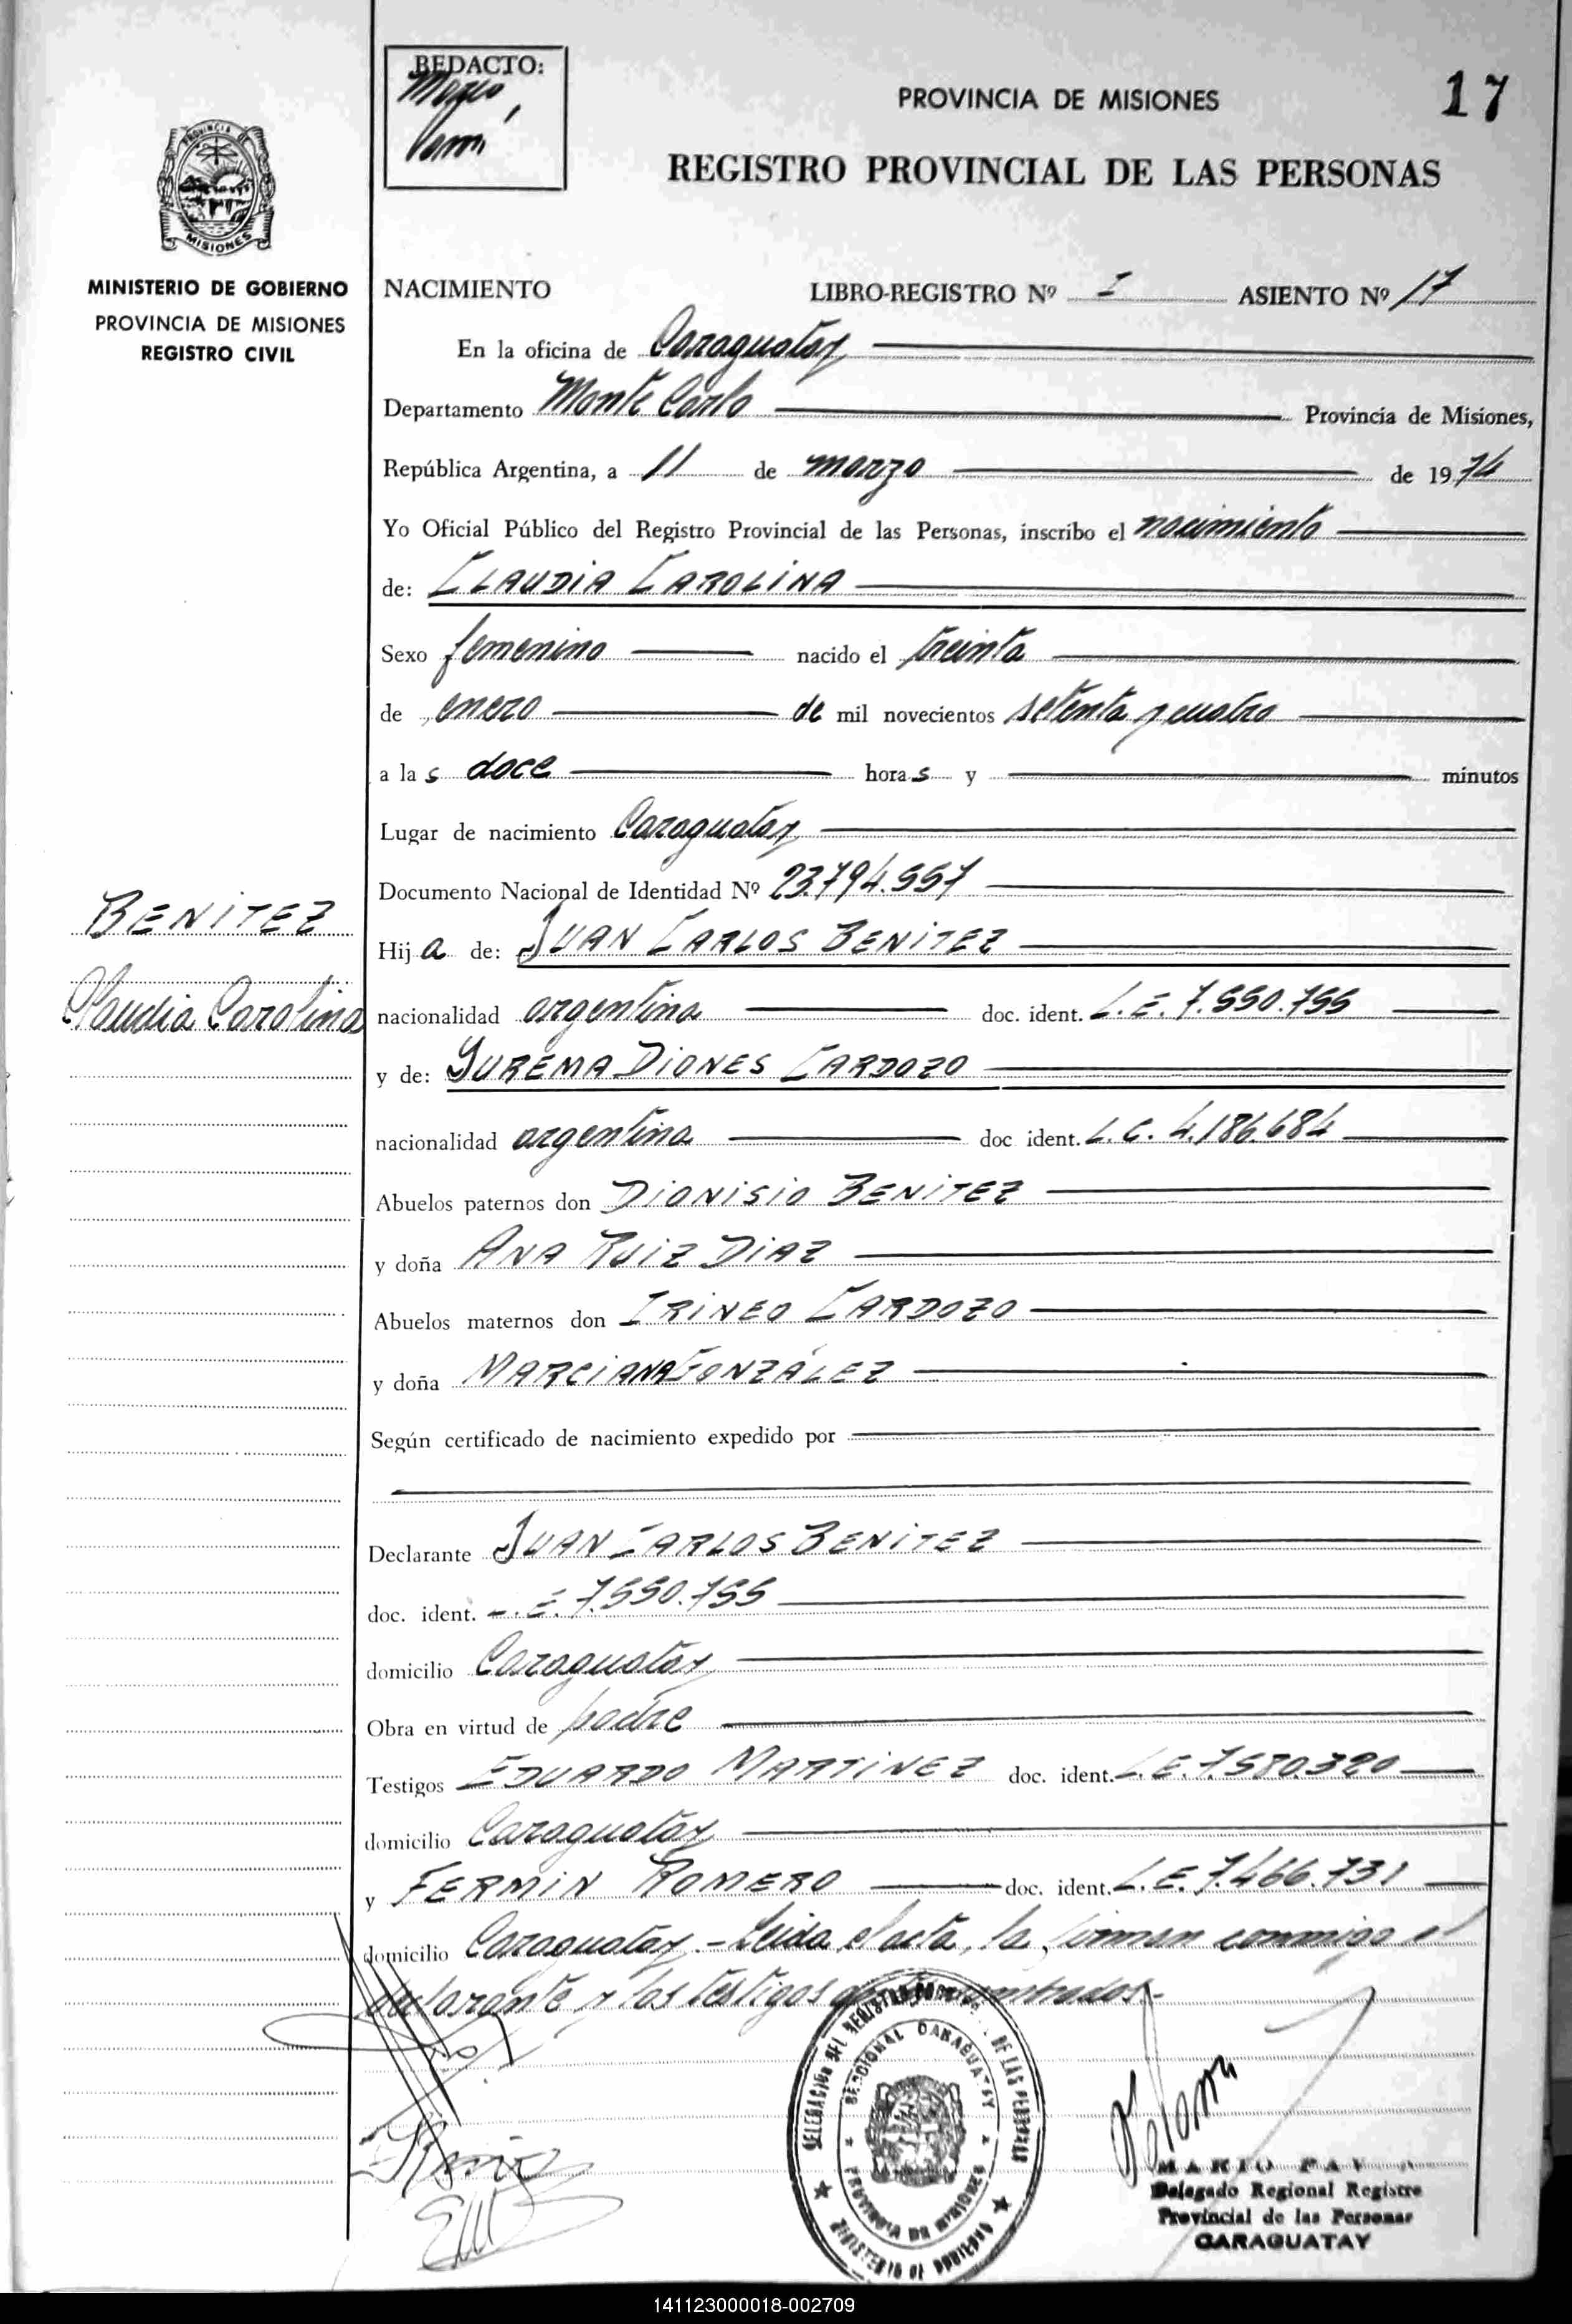 REDACTO:
Mario
PROVINCIA DE MISIONES
17
REGISTRO PROVINCIAL DE LAS PERSONAS
PROVINCIA DE
MISIONES
MINISTERIO DE GOBIERNO
PROVINCIA DE MISIONES
REGISTRO CIVIL
NACIMIENTO LIBRO-REGISTRO Nº I ASIENTO Nº 17
En la oficina de Caraguatay
Departamento Monte Carlo Provincia de Misiones,
República Argentina, a 11 de marzo de 1974
Yo Oficial Público del Registro Provincial de las Personas, inscribo el nacimiento
de: CLAUDIA CAROLINA
Sexo femenino nacido el treinta
de enero de mil novecientos setenta y cuatro
a las doce horas y minutos
Lugar de nacimiento Caraguatay
Documento Nacional de Identidad Nº 23.794.557
BENITEZ
Claudia Carolina
Hija de: JUAN CARLOS BENITEZ
nacionalidad argentina doc. ident. L.E. 7.550.755
y de: YUREMA DIONES CARDOZO
nacionalidad argentina doc ident. L.C. 4.186.684
Abuelos paternos don DIONISIO BENITEZ
y doña ANA RUIZ DIAZ
Abuelos maternos don IRINEO CARDOZO
y doña MARCIANA GONZÁLEZ
Según certificado de nacimiento expedido por
Declarante JUAN CARLOS BENITEZ
doc. ident. L.E. 7.550.755
domicilio Caraguatay
Obra en virtud de padre
Testigos EDUARDO MARTINEZ doc. ident. L.E. 7.580.320
domicilio Caraguatay
y FERMIN ROMERO doc. ident. L.E. 7.466.731
domicilio Caraguatay.- Leida el acta, la firman conmigo el
declarante y los testigos
DELEGACION DEL REGISTRO PROVINCIAL DE LAS PERSONAS
SECCIONAL CARAGUATAY
PROVINCIA DE MISIONES
MINISTERIO DE GOBIERNO
MARIO
Delegado Regional Registro
Provincial de las Personas
CARAGUATAY
141123000018-002709